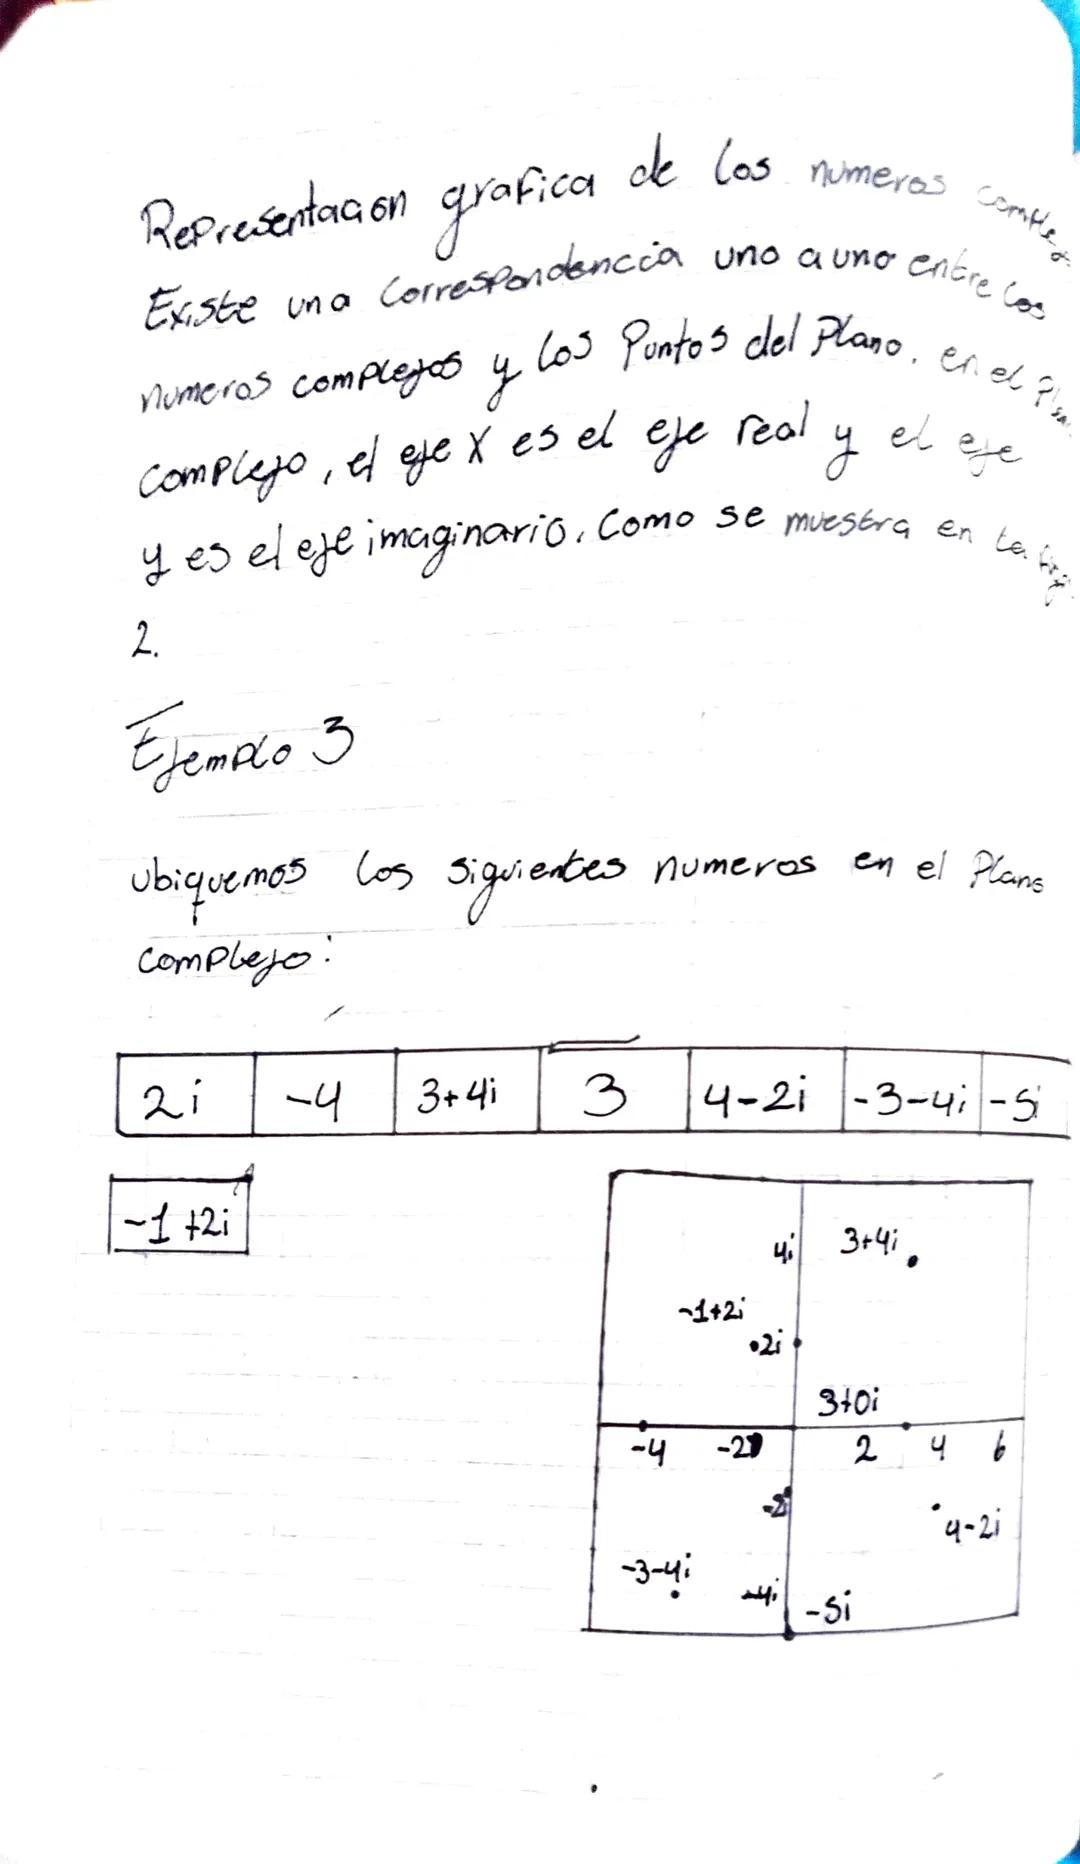 Representacion grafica de los numeros
Existe una Correspondenccia uno a uno entre los
numeros complejos y los Puntos del Plano. en el
complejo, el eje X es el eje real y el eje
y es el eje imaginario, Como se muestra en la
2.
Ejemplo 3
ubiquemos los siguientes numeros en el Plano
complejo:
2i -4 3+4i 3 4-2i -3-4i -5i
-1+2i
4i 3+4i
-1+2i
2i
3+0i
-4 -2 2 4 6
-2i
4-2i
-3-4i
-4i -5i